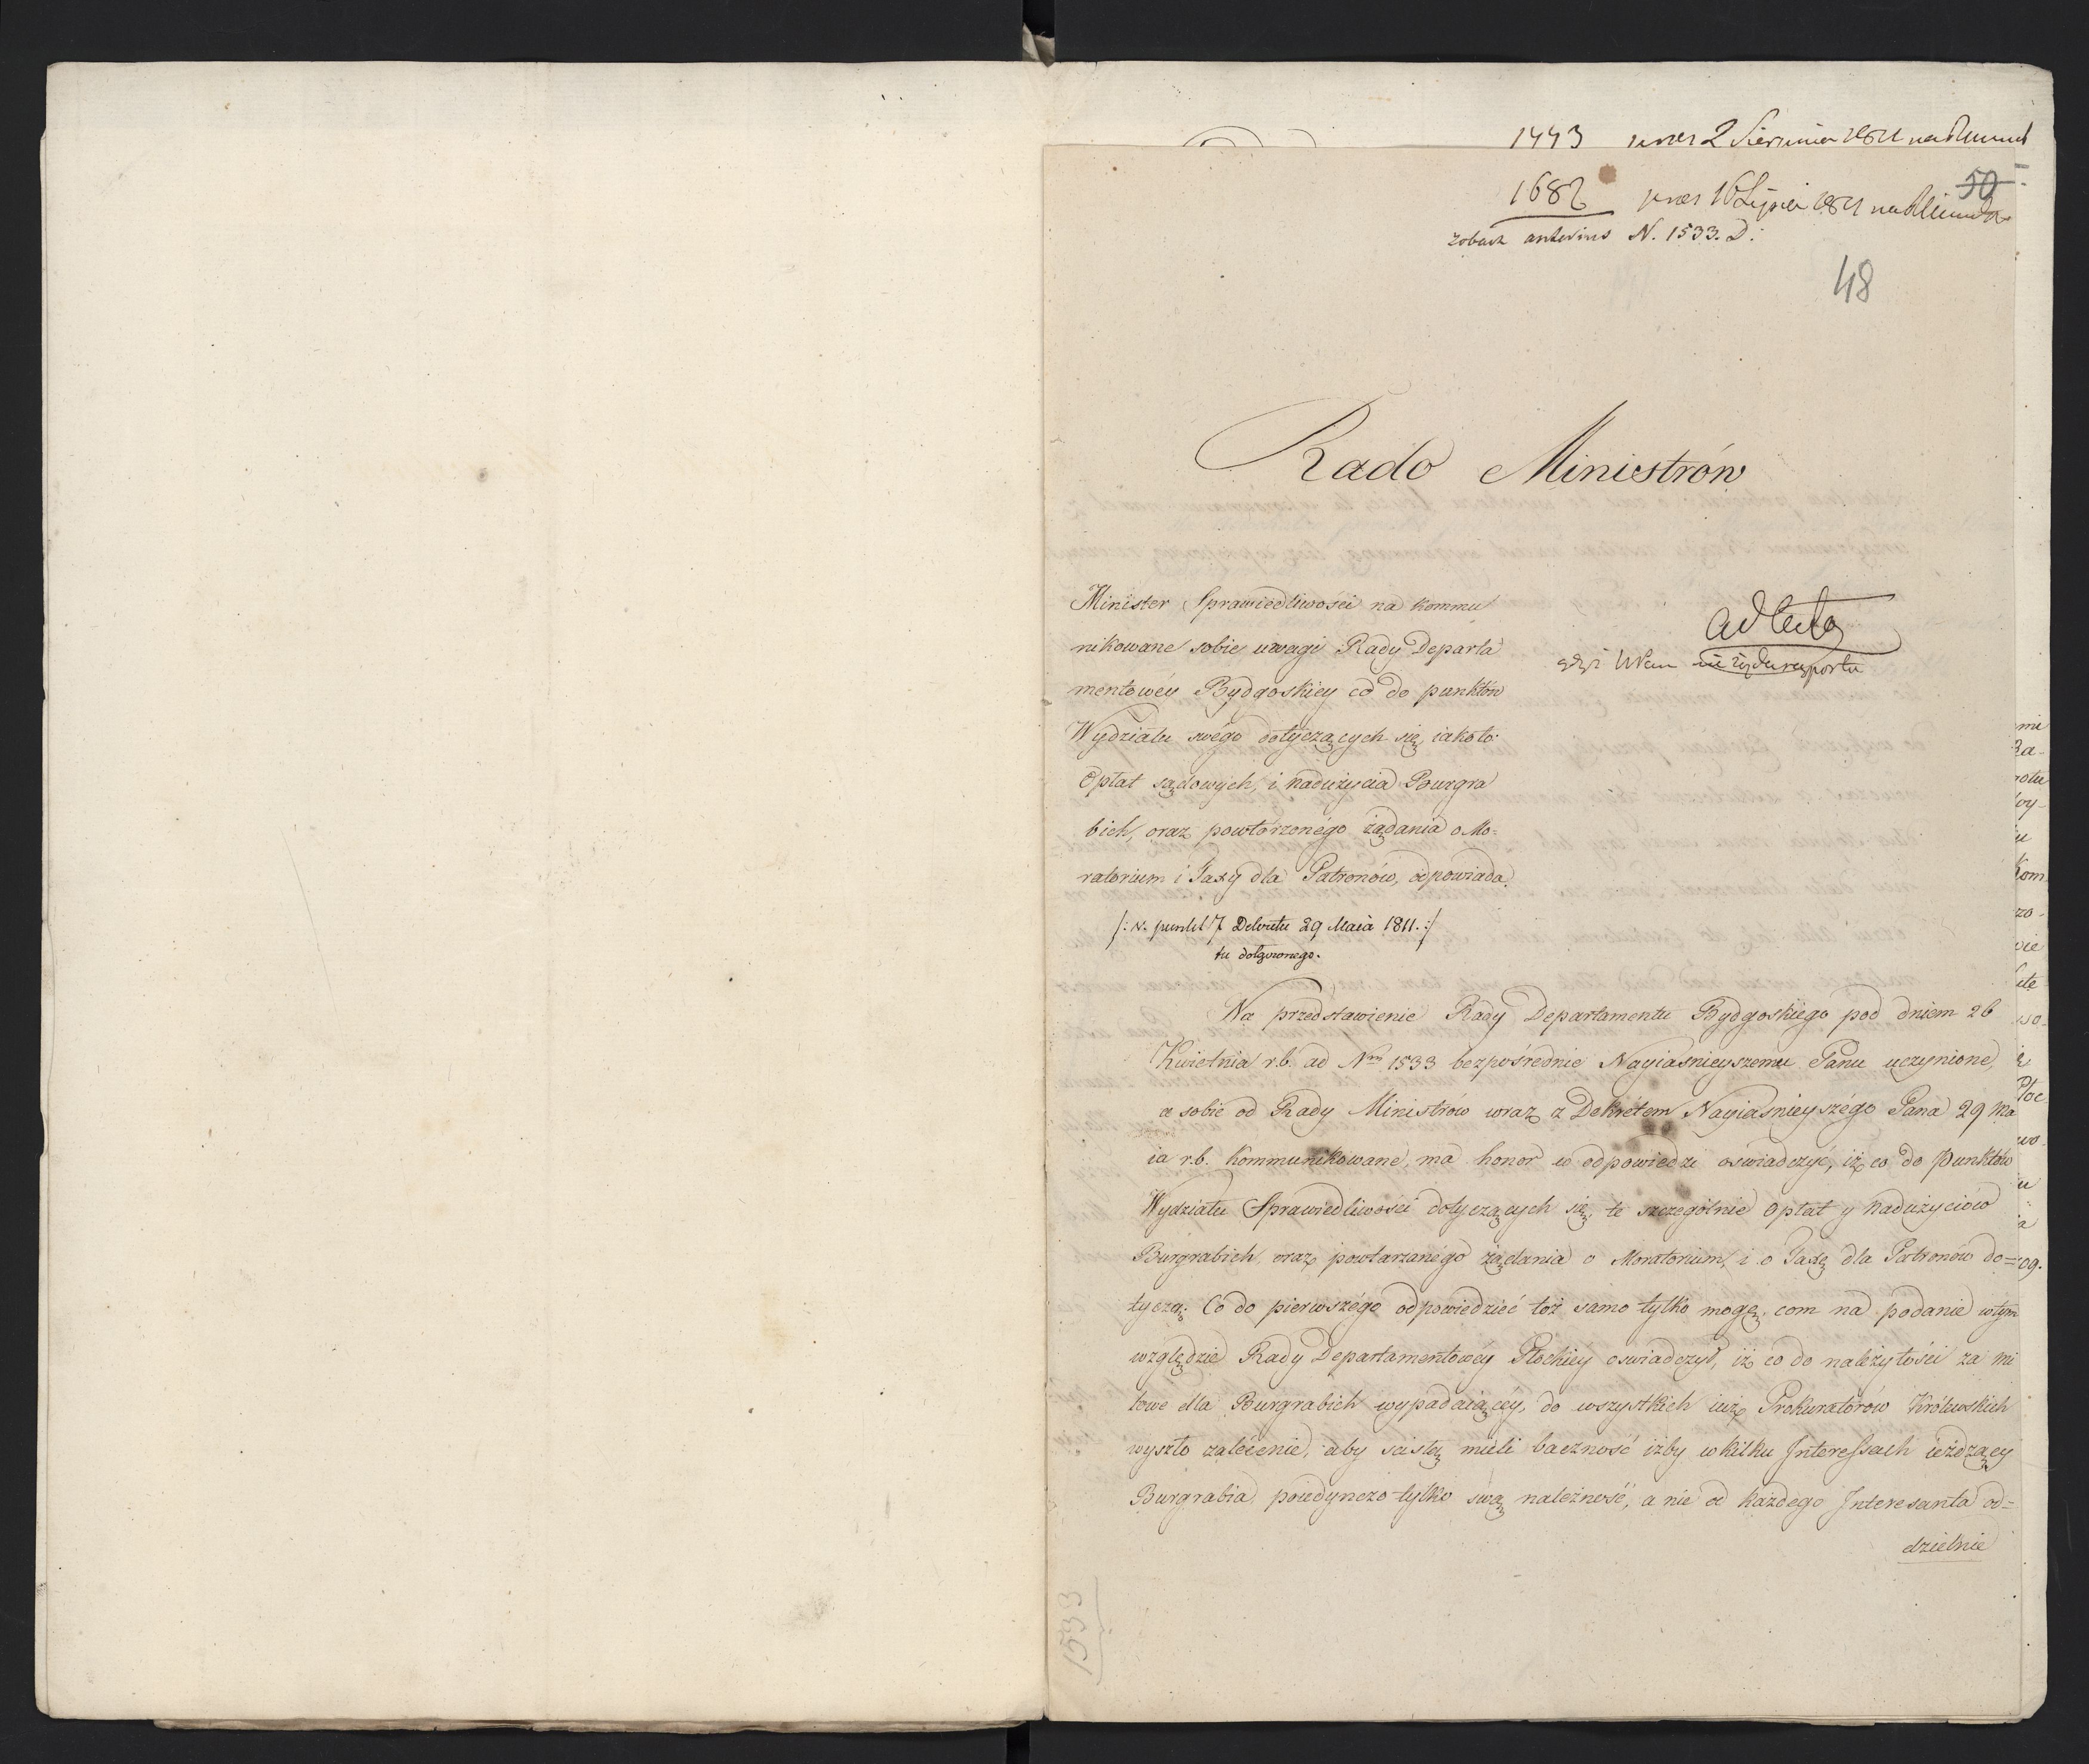 1443 2 Sierpnia 1811
50
1682 16 Lipca 1811
zobacz anterius N. 1533. D:
48
Rado Ministrów
Minister Sprawiedliwości na kommu
nikowane sobie uwagi Rady Departa
mentowéy Bydgoskiey co do punktów
Wydziału swégo dotyczących się iakoto:
Opłat sądowych, i nadużycia Burgra
bich, oraz powtórzonégo żądania o Mo-
ratorium i Taxy dla Patronów, odpowiada.
ad acta
gdyż nie żąda raportu
/: v. punkt 7 Dekretu 29 Maia 1811. :/
tu dołączonego.
Na przedstawienie Rady Departamentu Bydgoskiego pod dniem 26
Kwietnia r.b. ad Nrm 1533 bezpośrednie Nayiaśnieyszemu Panu uczynione,
a sobie od Rady Ministrów wraz z Dekretem Nayiaśnieyszégo Pana 29 Ma
ia r.b. kommunikowane, ma honor w odpowiedzi oświadczyć, iż co do punktów
Wydziału Sprawiedliwości dotyczących się, te szczególnie Opłat y nadużyciów
Burgrabich, oraz powtarzanégo żądania o Moratorium, i o Taxę dla Patronów do=
tyczą. Co do pierwszégo odpowiedzieć toż samo tylko mogę, com na podanie wtym
względzie Rady Departamentowéy Płockiey oswiadczył, iż co do należytości za mi
lowe dla Burgrabich wypadaiącéy, do wszystkich iuż Prokuratorów Królewskich
wyszło zalécenie, aby scisłą mieli baczność iżby w kilku Interessach ieżdżący
Burgrabia poiedynczo tylko swą należność, a nie od każdego Interesanta od=
dzielnie
1533
mi
Ra-
rotu
wy-
u
Kom
zo-
wie
wo-
Płoc
wo-
u
a
og.